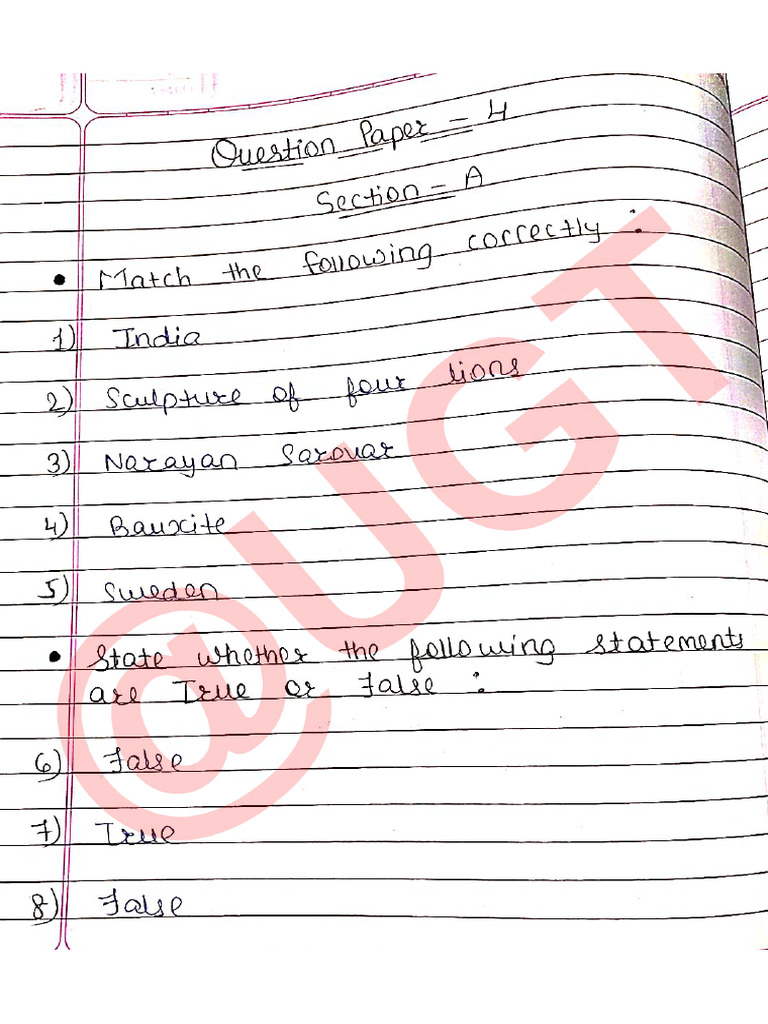 Question Paper - 4
Section - A
• Match the following correctly :
1) India
2) Sculpture of four lions
3) Narayan Sarovar
4) Bauxite
5) Sweden
• State whether the following statements
are True or False :
6) False
7) True
8) False
@UGT